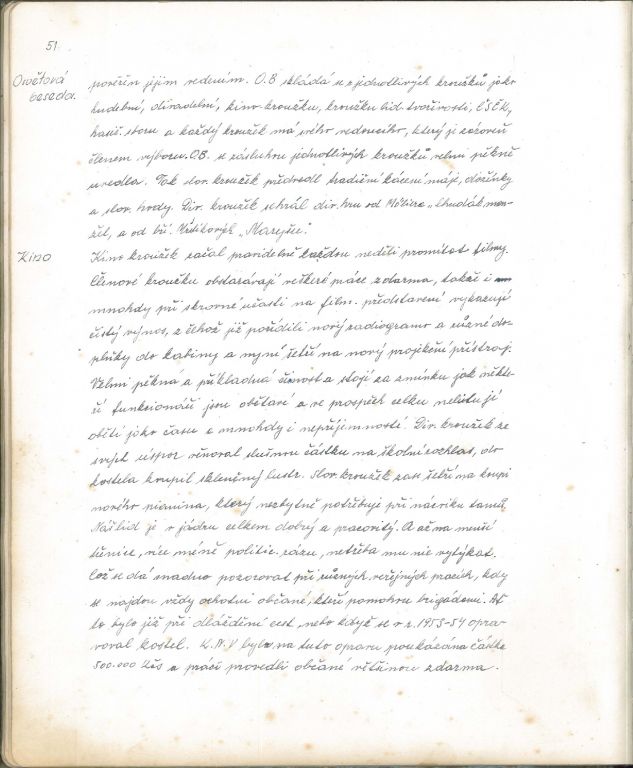 51
Osvětová
beseda.
pověřen jejím vedením. O.B skládá se z jednotlivých kroužků jako
hudební, divadelní, kino-kroužku, kroužku lid. tvořivosti, ČSČK,
hasič. sboru a každý kroužek má svého vedoucího, který je zároveň
členem výboru. O.B. se zásluhou jednotlivých kroužků velmi pěkně
uvedla. Tak slov. kroužek předvedl tradiční kácení máje, dožínky
a slov. hody. Div. kroužek sehrál div. hru od Moliera „Chudák man-
žel, a od bř. Mrštíkových „Maryšu."
Kino
Kino kroužek začal pravidelně každou neděli promítat filmy.
Členové kroužku obstarávají veškeré práce zdarma, takže i
mnohdy při skrovné účasti na film. představení vykazují
čistý výnos, z čehož již pořídili nový radiogramo a různé do-
plňky do kabiny a nyní šetří na nový projekční přístroj.
Velmi pěkná a příkladná činnost a stojí za zmínku jak někte-
ří funkcionáři jsou obětaví a ve prospěch celku nelitují
obětí jako času a mnohdy i nepříjemností. Div. kroužek ze
svých úspor věnoval slušnou částku na školní rozhlas, do
kostela koupil skleněný lustr. Slov. kroužek zase šetří na koupi
nového pianina, který nezbytně potřebuje při nácviku tanců.
Náš lid je v jádru celkem dobrý a pracovitý. A až na menší
třenice, více méně politic. rázu, netřeba mu nic vytýkat.
Což se dá snadno pozorovat při různých veřejných pracích, kdy
se najdou vždy ochotní občané, kteří pomohou brigádami. Ať
to bylo již při dláždění cest, nebo když se v r. 1953-54 opra-
voval kostel. K.N.V byla na tuto opravu poukázána částka
500.000 Kčs a práci provedli občané většinou zdarma.